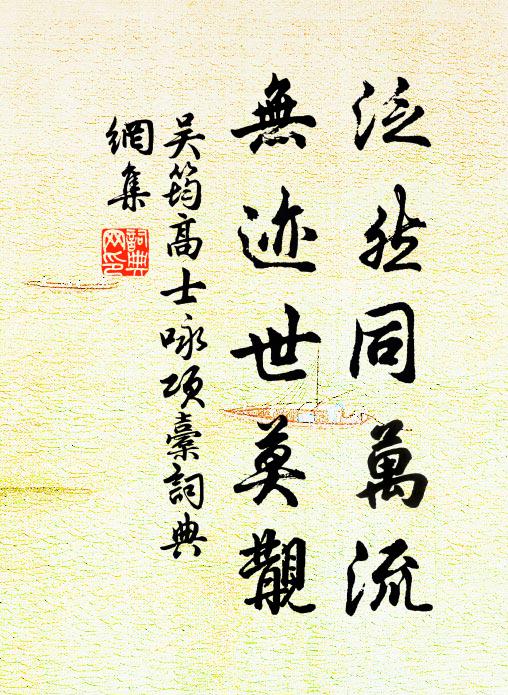 泛然同萬流
無迹世莫覩
吴筠高士咏項橐詞典
網集
詞典
网印